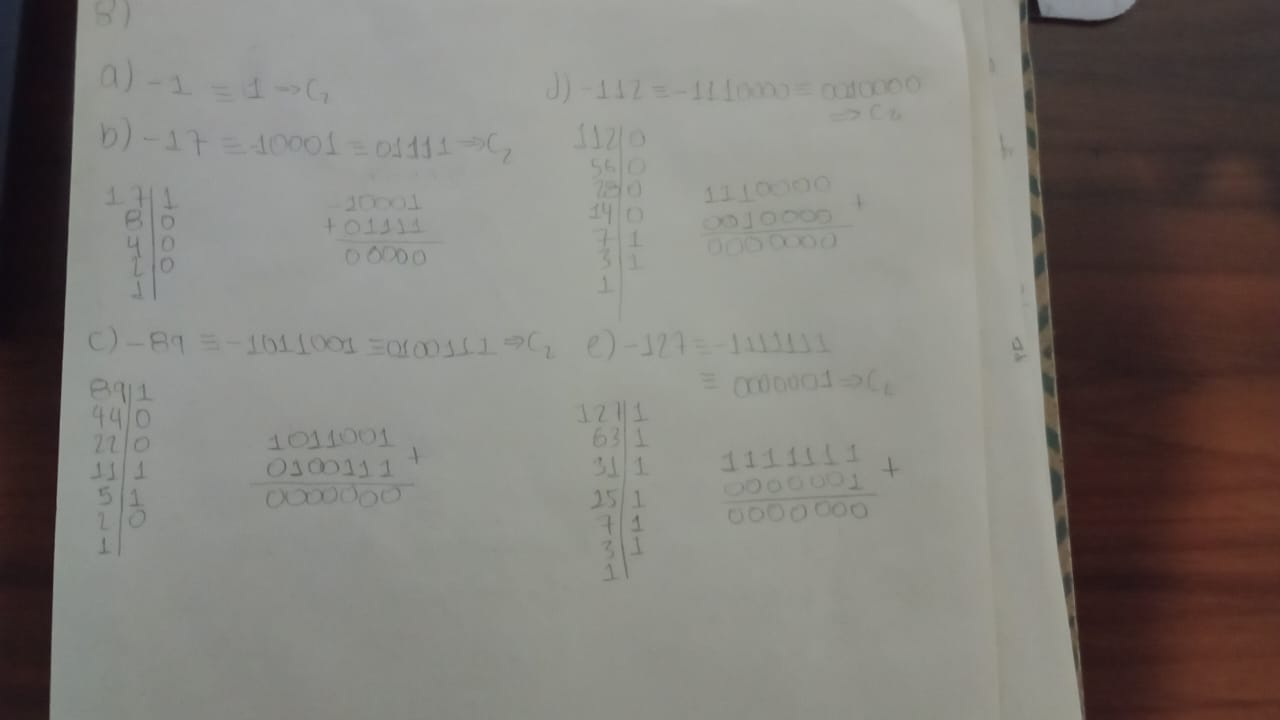 8)
a) -1 ≡ 1 ⇒ C₂
b) -17 ≡ -10001 ≡ 01111 ⇒ C₂
17|1
8|0
4|0
2|0
1|
-10001
+01111
00000
c) -89 ≡ -1011001 ≡ 0100111 ⇒ C₂
89|1
44|0
22|0
11|1
5|1
2|0
1|
1011001
0100111 +
0000000
d) -112 ≡ -1110000 ≡ 0010000
⇒ C₂
112|0
56|0
28|0
14|0
7|1
3|1
1|
1110000
0010000 +
0000000
e) -127 ≡ -1111111
≡ 0000001 ⇒ C₂
127|1
63|1
31|1
15|1
7|1
3|1
1|
1111111
0000001 +
0000000